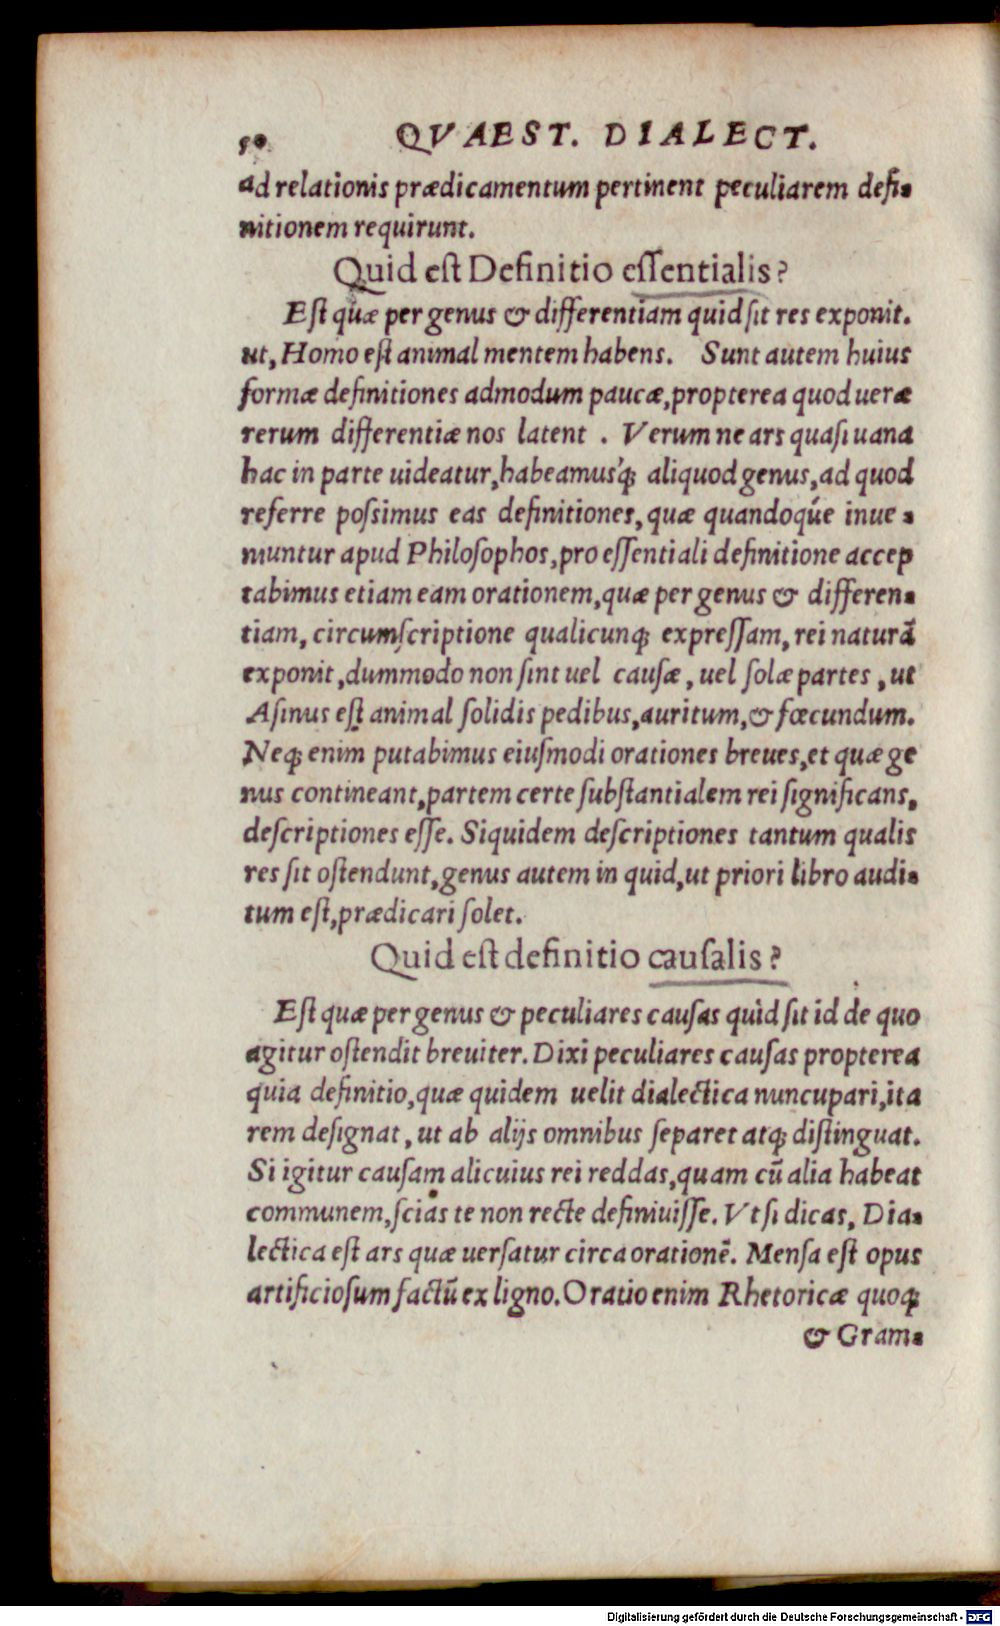 50 QVAEST. DIALECT.
ad relationis prædicamentum pertinent peculiarem defi-
nitionem requirunt.
Quid est Definitio essentialis?
Est quæ per genus & differentiam quid sit res exponit.
ut, Homo est animal mentem habens. Sunt autem huius
formæ definitiones admodum paucæ, propterea quod ueræ
rerum differentiæ nos latent . Verum ne ars quasi uana
hac in parte uideatur, habeamusq́; aliquod genus, ad quod
referre possimus eas definitiones, quæ quandoq́ue inue-
niuntur apud Philosophos, pro essentiali definitione accep
tabimus etiam eam orationem, quæ per genus & differen-
tiam, circumscriptione qualicunq; expressam, rei naturã
exponit, dummodo non sint uel causæ, uel solæ partes, ut
Asinus est animal solidis pedibus, auritum, & fœcundum.
Neq; enim putabimus eiusmodi orationes breues, et quæ ge
nus contineant, partem certe substantialem rei significans,
descriptiones esse. Siquidem descriptiones tantum qualis
res sit ostendunt, genus autem in quid, ut priori libro audi-
tum est, prædicari solet.
Quid est definitio causalis?
Est quæ per genus & peculiares causas quid sit id de quo
agitur ostendit breuiter. Dixi peculiares causas propterea
quia definitio, quæ quidem uelit dialectica nuncupari, ita
rem designat, ut ab alijs omnibus separet atq; distinguat.
Si igitur causam alicuius rei reddas, quam cũ alia habeat
communem, scias te non recte definiuisse. Vt si dicas, Dia-
lectica est ars quæ uersatur circa orationẽ. Mensa est opus
artificiosum factũ ex ligno. Oratio enim Rhetoricæ quoq;
& Gram-
Digitalisierung gefördert durch die Deutsche Forschungsgemeinschaft - DFG